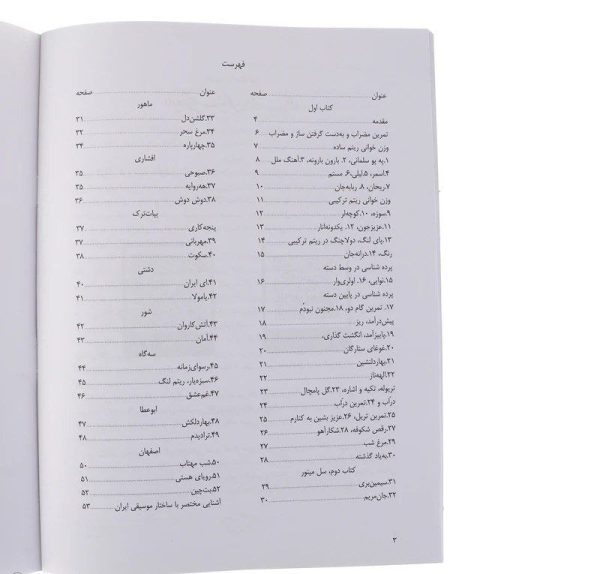 فهرست
عنوان صفحه
کتاب اول
مقدمه ۴
تمرین مضراب و به‌دست گرفتن ساز و مضراب ۶
وزن خوانی ریتم ساده ۷
۱.یه یو سلمانی، ۲. بارون بارونه، ۳.آهنگ ملل ۸
۴.اسمر، ۵.لیلی، ۶. مستم ۹
۷.ریحان، ۸. ربابه‌جان ۱۰
وزن خوانی ریتم ترکیبی ۱۱
۹.سوزه، ۱۰.کوچه‌لر ۱۲
۱۱.عزیزجون، ۱۲. یکدونه‌انار ۱۳
۱۳.پای لنگ، دولاچنگ در ریتم ترکیبی ۱۴
رنگ، ۱۴.درانه‌جان ۱۵
پرده شناسی در وسط دسته
۱۵.نوایی، ۱۶. اولری‌وار ۱۶
پرده شناسی در پایین دسته
۱۷. تمرین گام دو، ۱۸.مجنون نبودُم ۱۷
پیش‌درآمد، ریز ۱۸
۱۹.پاییزآمد، انگشت گذاری، ۱۹
۲۰.غوغای ستارگان ۲۰
۲۱.بهاردلنشین ۲۱
۲۲.الهه‌ناز ۲۲
تریوله، تکیه و اشاره، ۲۳.گل پامچال ۲۳
درآب و ۲۴.تمرین درآب ۲۴
۲۵.تمرین تریل، ۲۶.عزیز بشین به کنارم ۲۵
۲۷.رقص شکوفه، ۲۸.شکارآهو ۲۶
۲۹.مرغ شب ۲۷
۳۰.به‌یاد گذشته ۲۸
کتاب دوم، سل مینور
۳۱.سیمین‌بری ۲۹
۳۲.جان‌مریم ۳۰
عنوان صفحه
ماهور
۳۳.گلشن‌دل ۳۱
۳۴.مرغ سحر ۳۲
۳۵.چهارپاره ۳۴
افشاری
۳۶.صبوحی ۳۵
۳۷.هه‌روایه ۳۵
۳۸.دوش دوش ۳۶
بیات‌ترک
پنجه‌کاری ۳۷
۳۹.مهربانی ۳۷
۴۰.سکوت ۳۸
دشتی
۴۱.ای ایران ۴۰
۴۲.یامولا ۴۱
شور
۴۳.آتش‌کاروان ۴۲
۴۴.آمان ۴۳
سه‌گاه
۴۵.رسوای‌زمانه ۴۴
۴۶.سبزه‌یار، ریتم لنگ ۴۵
۴۷.غم‌عشق ۴۶
ابوعطا
۴۸.بهاردلکش ۴۷
۴۹.ترادیدم ۴۸
اصفهان
۵۰.شب مهتاب ۵۰
۵۱.رویای هستی ۵۱
۵۲.بت‌چین ۵۲
آشنایی مختصر با ساختار موسیقی ایران ۵۳
۳